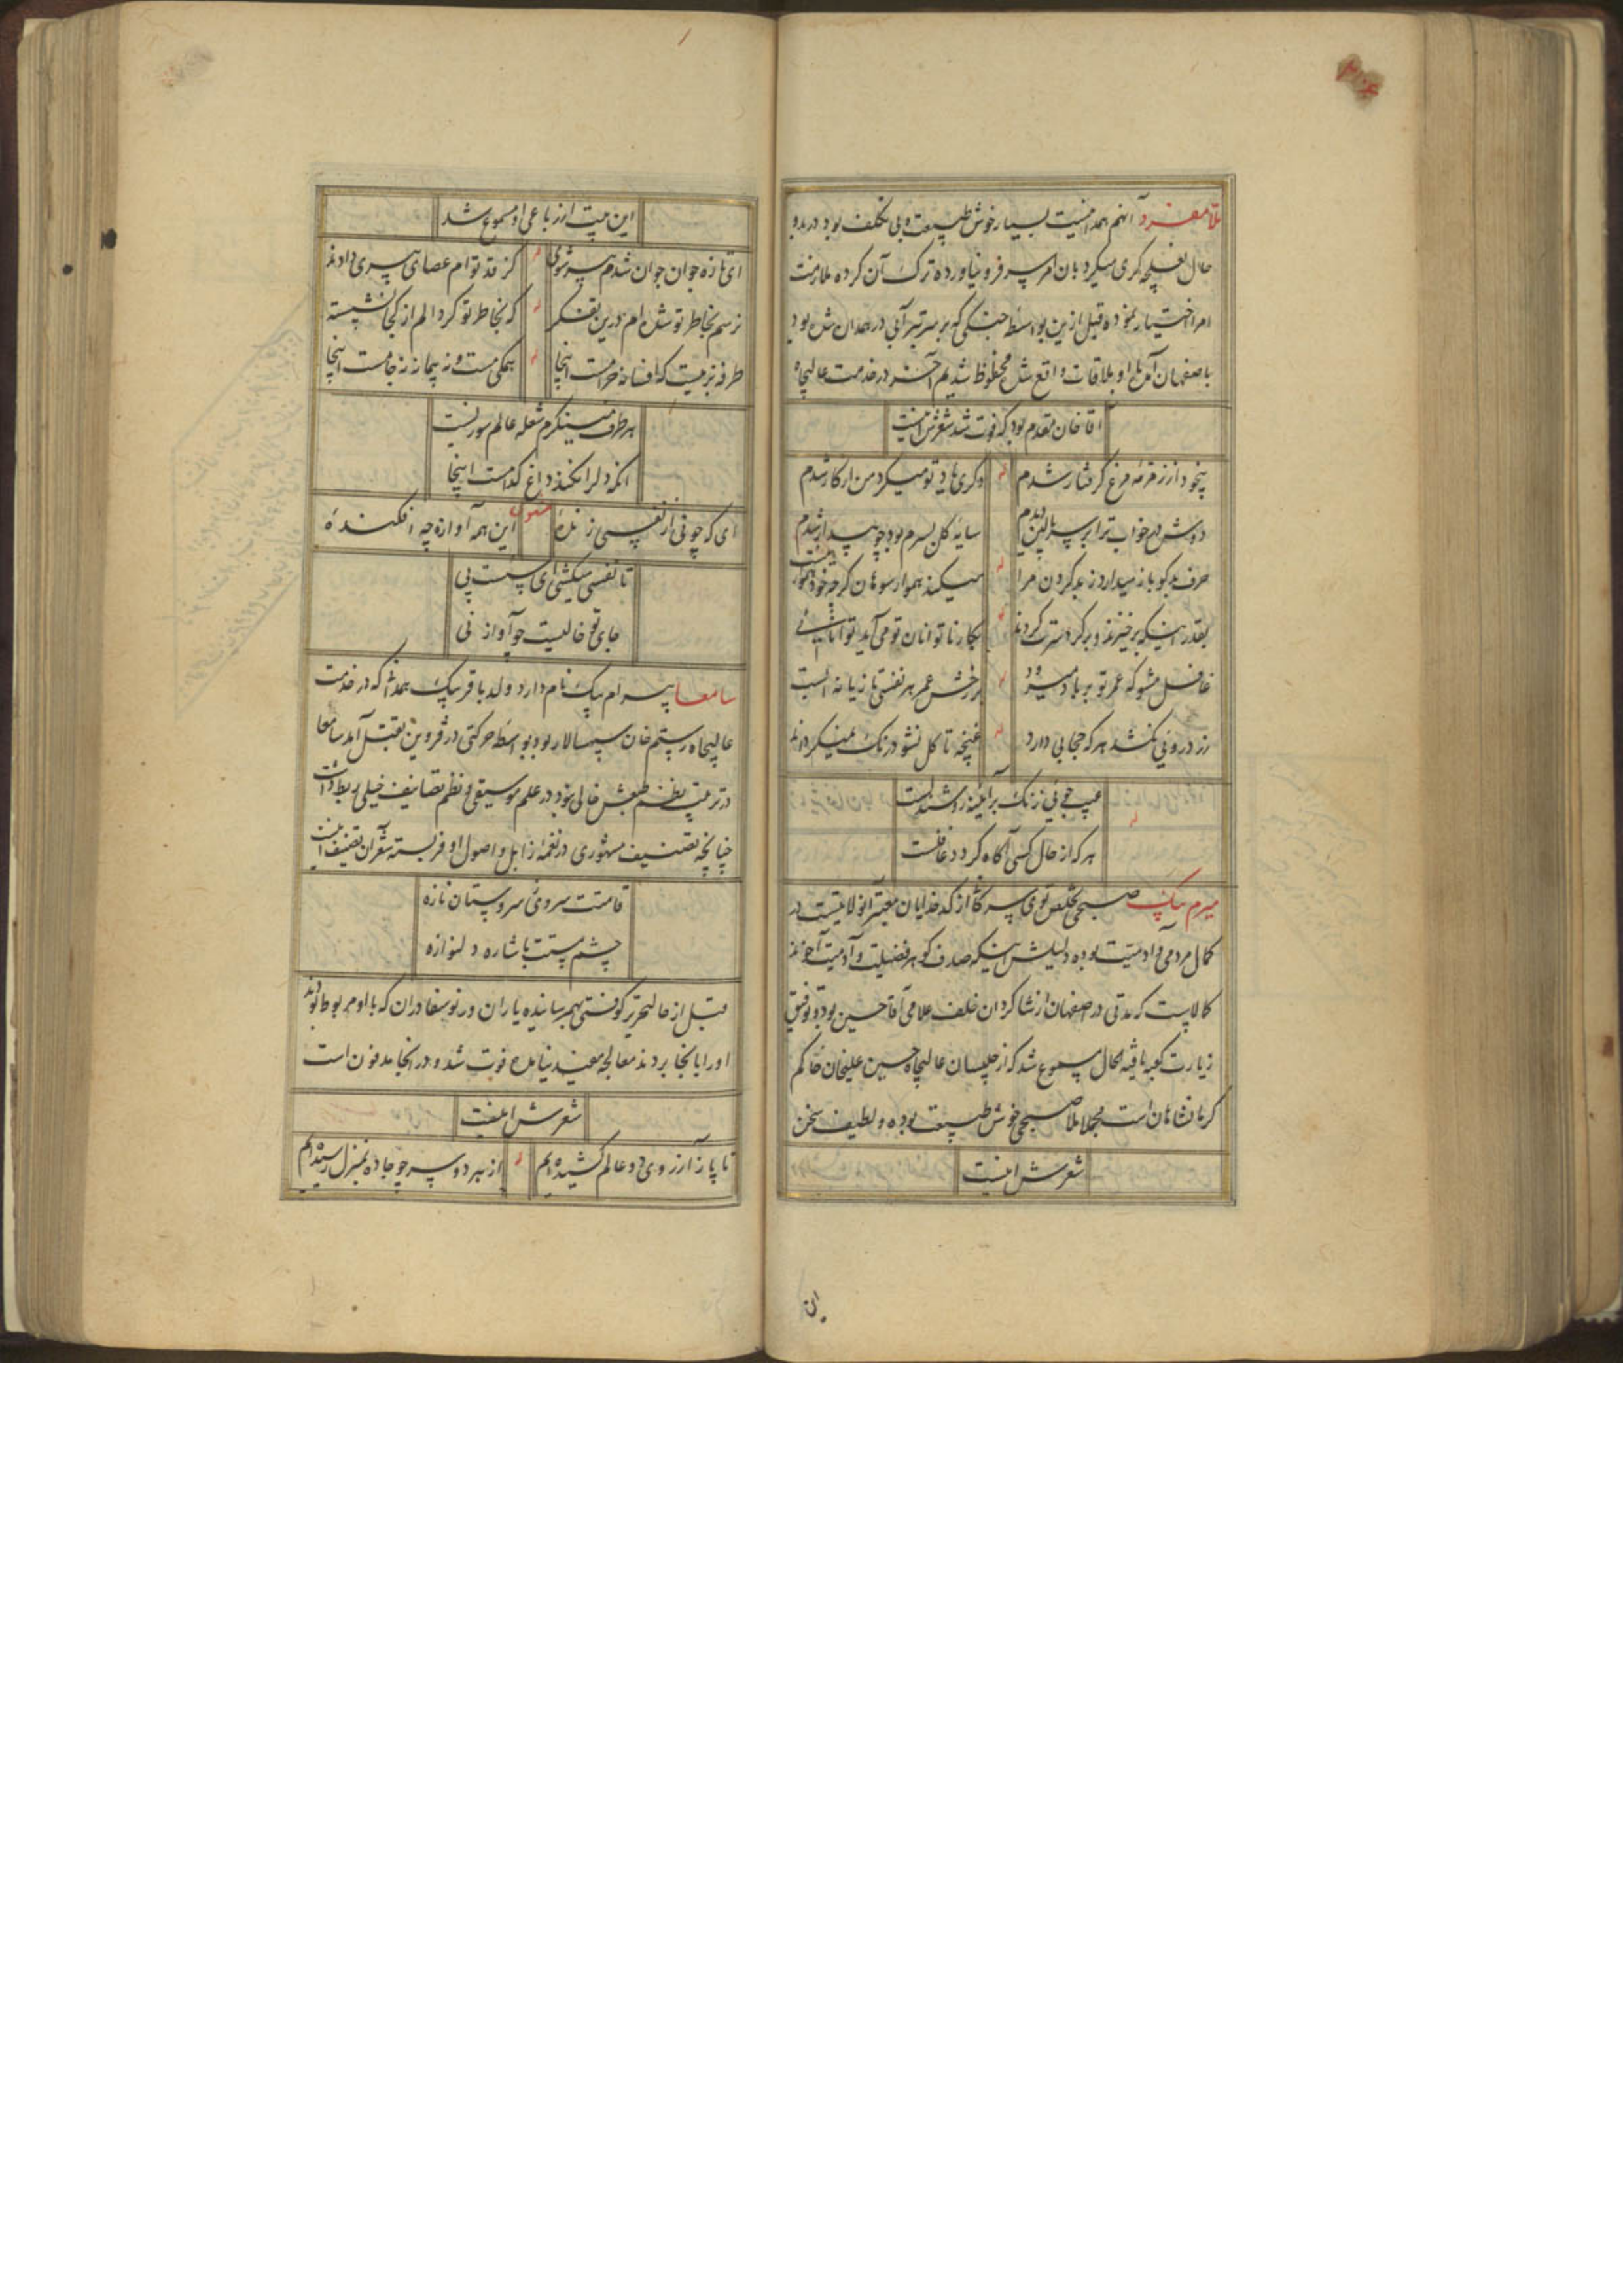 ملا مفرد آنهم همدانیست بسیار خوش طبیعت و بی تکلف بود در بدو
حال نعلچه گری میکرد بآن امر سر فرو نیاورده ترک آن کرده ملازمت
امرا اختیار نموده قبل ازین بواسطه جنگی که بر سر تیرآبی در همدان شده بود
باصفهان آمده باو ملاقات واقع شد محظوظ شدیم آخر در خدمت عالیجاه
آقا خان مقدم بود که فوت شد شعرش اینست
بیخود از زمزمه مرغ گرفتار شدم
دگری یاد تو میکرد من از کار شدم
دوش در خواب ترا بر سر بالین دیدم
سایه گل بسرم بود چو بیدار شدم
حرف بدگو باز میدارد ز بد کردن مرا
میکند هموار سوهان گرچه خود هموار نیست
بقدر اینکه برخیزند و بر گرد سرت گردند
بکار ناتوانان تو می آید توانائی
غافل مشو که عمر تو بر باد میرود
بر رخش عمر هر نفسی تازیانه ایست
زر درونی نکشد هر که حجابی دارد
غنچه تا گل نشود رنگ نمیگرداند
عیب جوئی زنگ بر آئینه روشندلست
هر که از حال کسی آگاه گردد غافلست
میرم بیک صبحی تخلص توی سرکا از کدخدایان معتبر آنولایتست در
کمال مردمی و آدمیت بوده دلیلش اینکه صدف گوهر فضیلت و آدمیت آخوند
کالاست که مدتی در اصفهان از شاگردان خلف علامی آقا حسین بود و توفیق
زیارت کعبه یافته الحال مسموع شد که از جلیسان عالیجاه حسین علیخان حاکم
کرمانشاهان است مجملا ملا صبحی خوش طبیعت بوده و لطیف سخن
شعرش اینست
این بیت از رباعی او مسموع شد
ای تازه جوان جوان شدم پیر شوی
کز قد توام عصای پیری دادند
نرسم بخاطر تو شده ام درین تفکر
که بخاطر تو گرد الم از کجا نشسته
طرفه بزمیست که افسانه حرامست اینجا
همگی مست و نه پیمانه نه جامست اینجا
هر طرف مینگرم شعله عالم سوریست
آنکه دل را نکند داغ کدامست اینجا
ای که چو نی از نفسی زنده
این همه آوازه چه افکنده
تا نفسی میکشی ای سست پی
جای تو خالیست چو آواز نی
سامعا بیرام بیک نام دارد ولد باقر بیک همدانی که در خدمت
عالیجاه رستم خان سپهسالار بود بواسطه حرکتی در قزوین بقتل آمد سامعا
در ترتیب نظم طبعش خالی نبود در علم موسیقی و نظم تصانیف خیلی ربط داشت
چنانچه تصنیف مشهوری در نغمه زابل و اصول اوفر بسته شعر آن تصنیف اینست
قامتت سروی سروستان نازه
چشم مستت باشاره دلنوازه
قبل از حال تحریر کوفتی بهم رسانیده یاران ورنوسفادران که با او مربوط بودند
او را بانجا بردند معالجه مفید نیامده فوت شد و در انجا مدفون است
شعرش اینست
تا پا ز آرزوی دو عالم کشیده ایم
از هر دو سر چو جاده بمنزل رسیده ایم